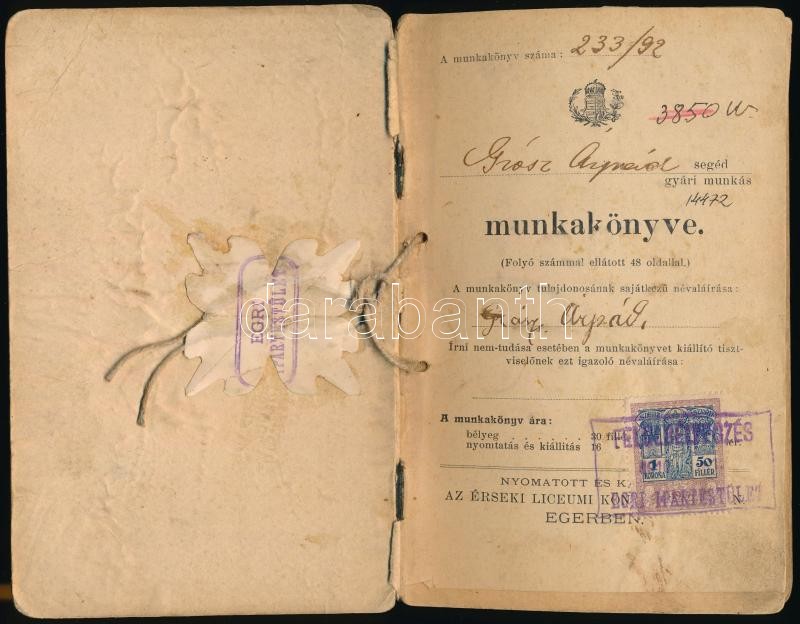 EGRI
IPARTESTÜLET
A munkakönyv száma: 233/92
3850
Grósz Árpád segéd
gyári munkás
14472
munkakönyve.
(Folyó számmal ellátott 48 oldallal.)
A munkakönyv tulajdonosának sajátkezű névaláírása:
Grósz Árpád.
Írni nem-tudása esetében a munkakönyvet kiállító tiszt-
viselőnek ezt igazoló névaláírása:
A munkakönyv ára:
bélyeg . . . . . . . . 30 fill
nyomtatás és kiállítás 16
1 KORONA 50 FILLÉR
EGRI IPARTESTÜLET
NYOMATOTT ÉS K
AZ ÉRSEKI LICEUMI KÖN
EGERBEN.
darabanth.com